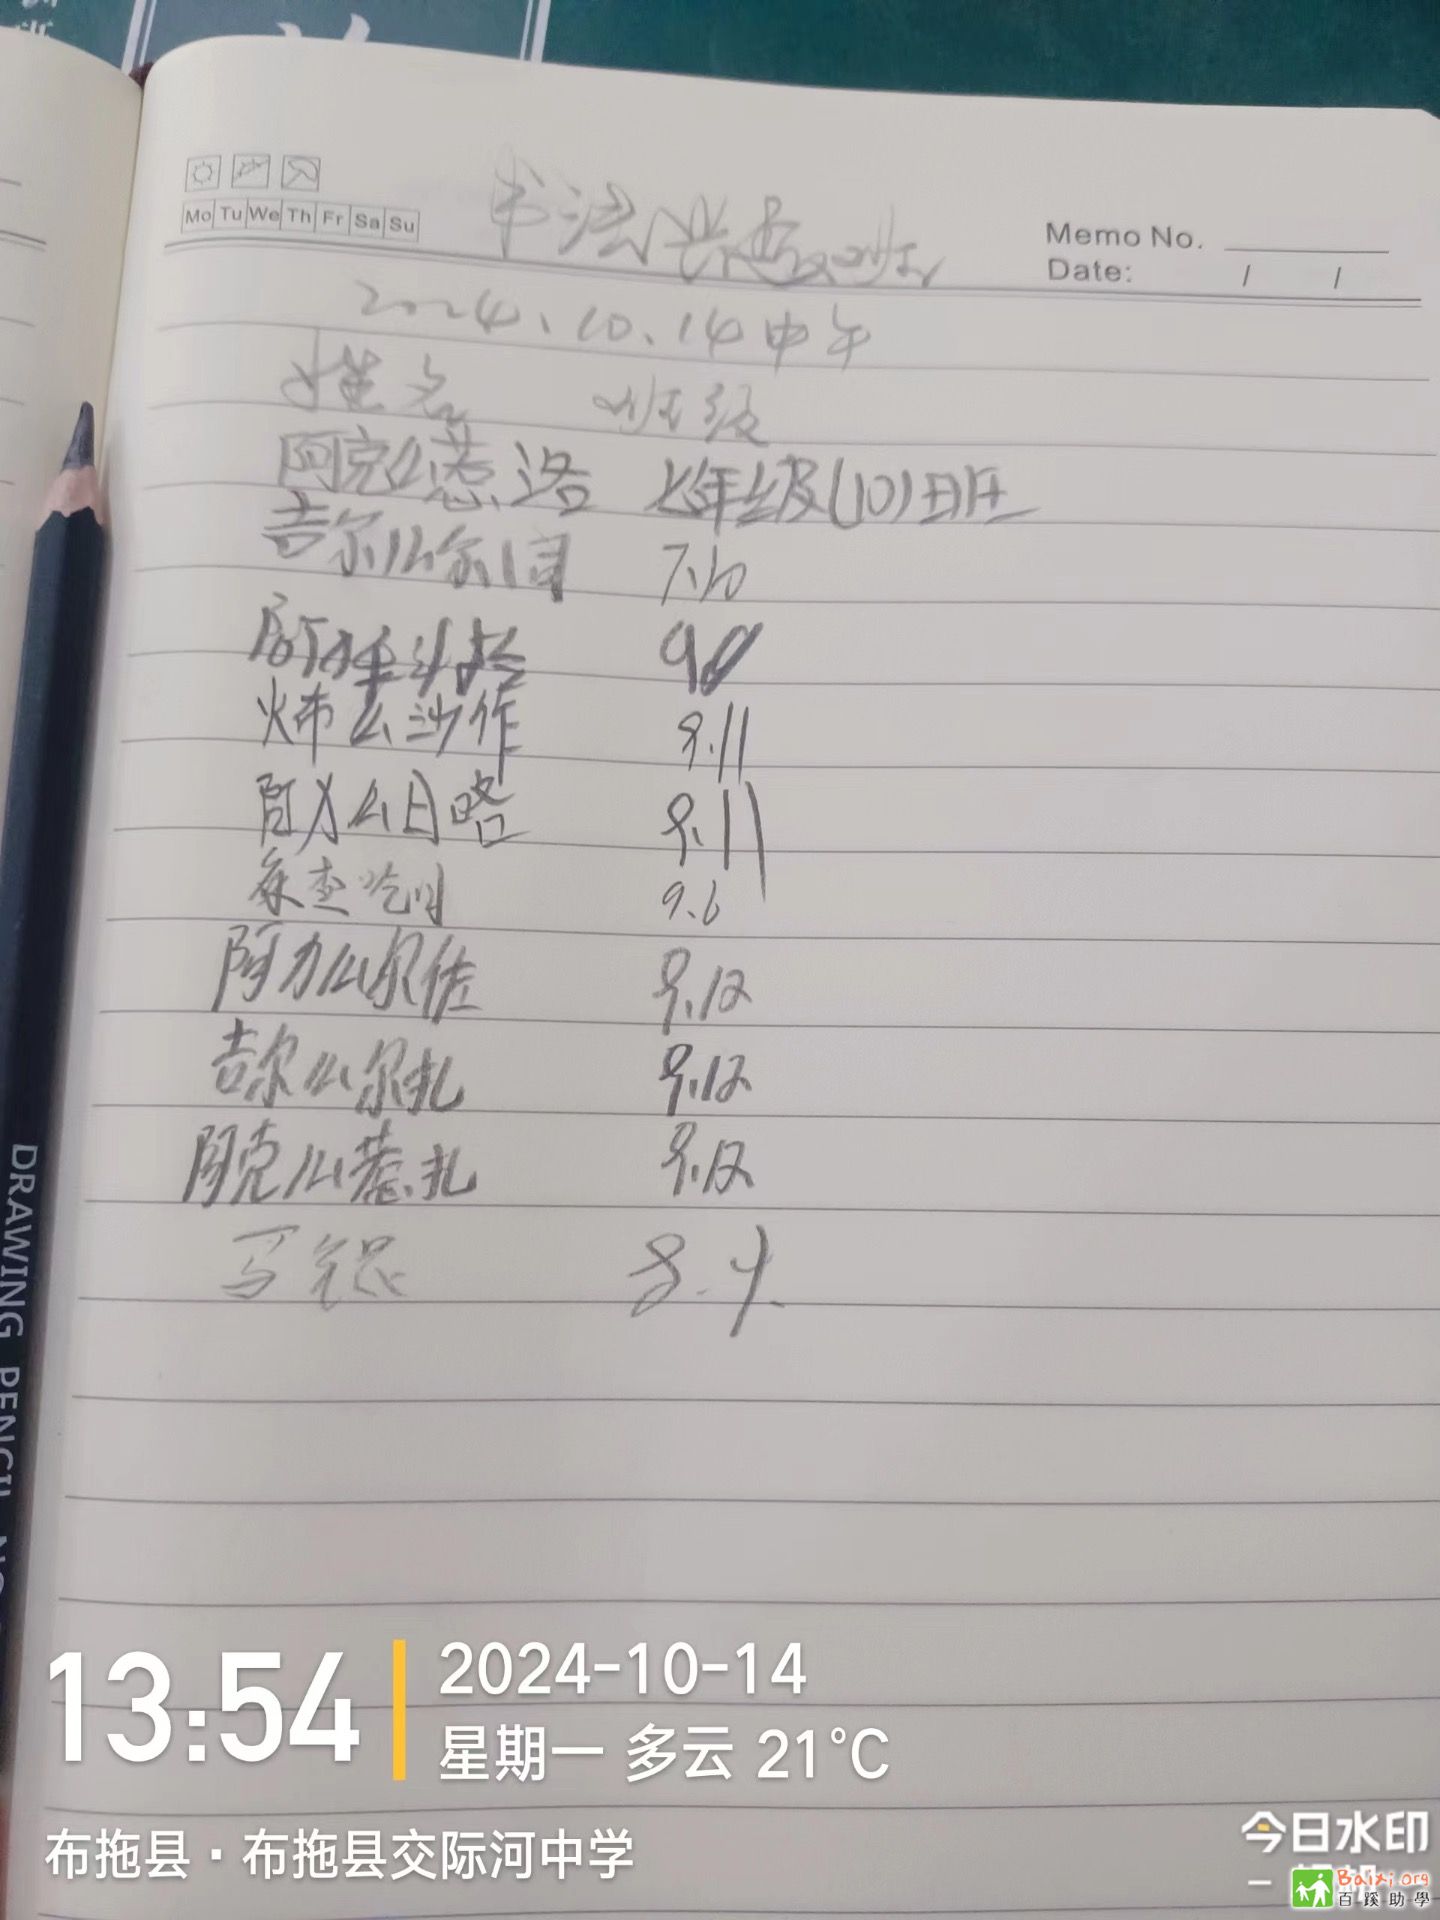 Mo Tu We Th Fr Sa Su
书法兴趣班
Memo No.
Date: / /
2024.10.14中午
姓名 班级
阿克么惹洛 七年级(10)班
吉尔么尔 7.10
9.11
么沙作 9.11
阿力么日略 9.11
9.6
阿力么尔佐 9.12
吉尔么尔扎 9.12
阿克么惹扎 9.12
马 8.
DRAWING PENCIL
13:54
2024-10-14
星期一 多云 21°C
布拖县·布拖县交际河中学
今日水印
Baixi.org
百蹊助學